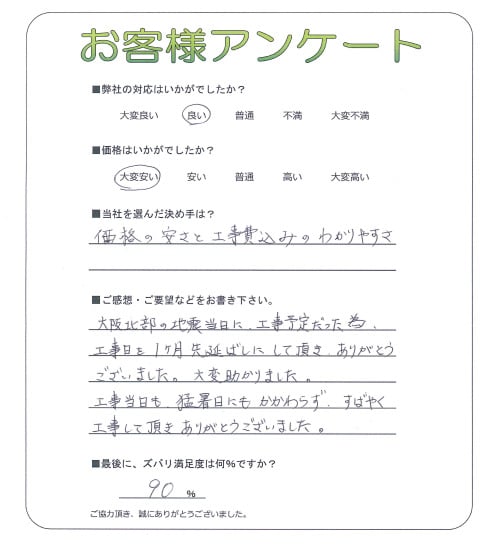 お客様アンケート
■弊社の対応はいかがでしたか？
大変良い 良い 普通 不満 大変不満
■価格はいかがでしたか？
大変安い 安い 普通 高い 大変高い
■当社を選んだ決め手は？
価格の安さと工事費込みのわかりやすさ
■ご感想・ご要望などをお書き下さい。
大阪北部の地震当日に、工事予定だった為、
工事日を1ヶ月先延ばしにして頂き、ありがとう
ございました。大変助かりました。
工事当日も、猛暑日にもかかわらず、すばやく
工事して頂きありがとうございました。
■最後に、ズバリ満足度は何%ですか？
90 %
ご協力頂き、誠にありがとうございました。